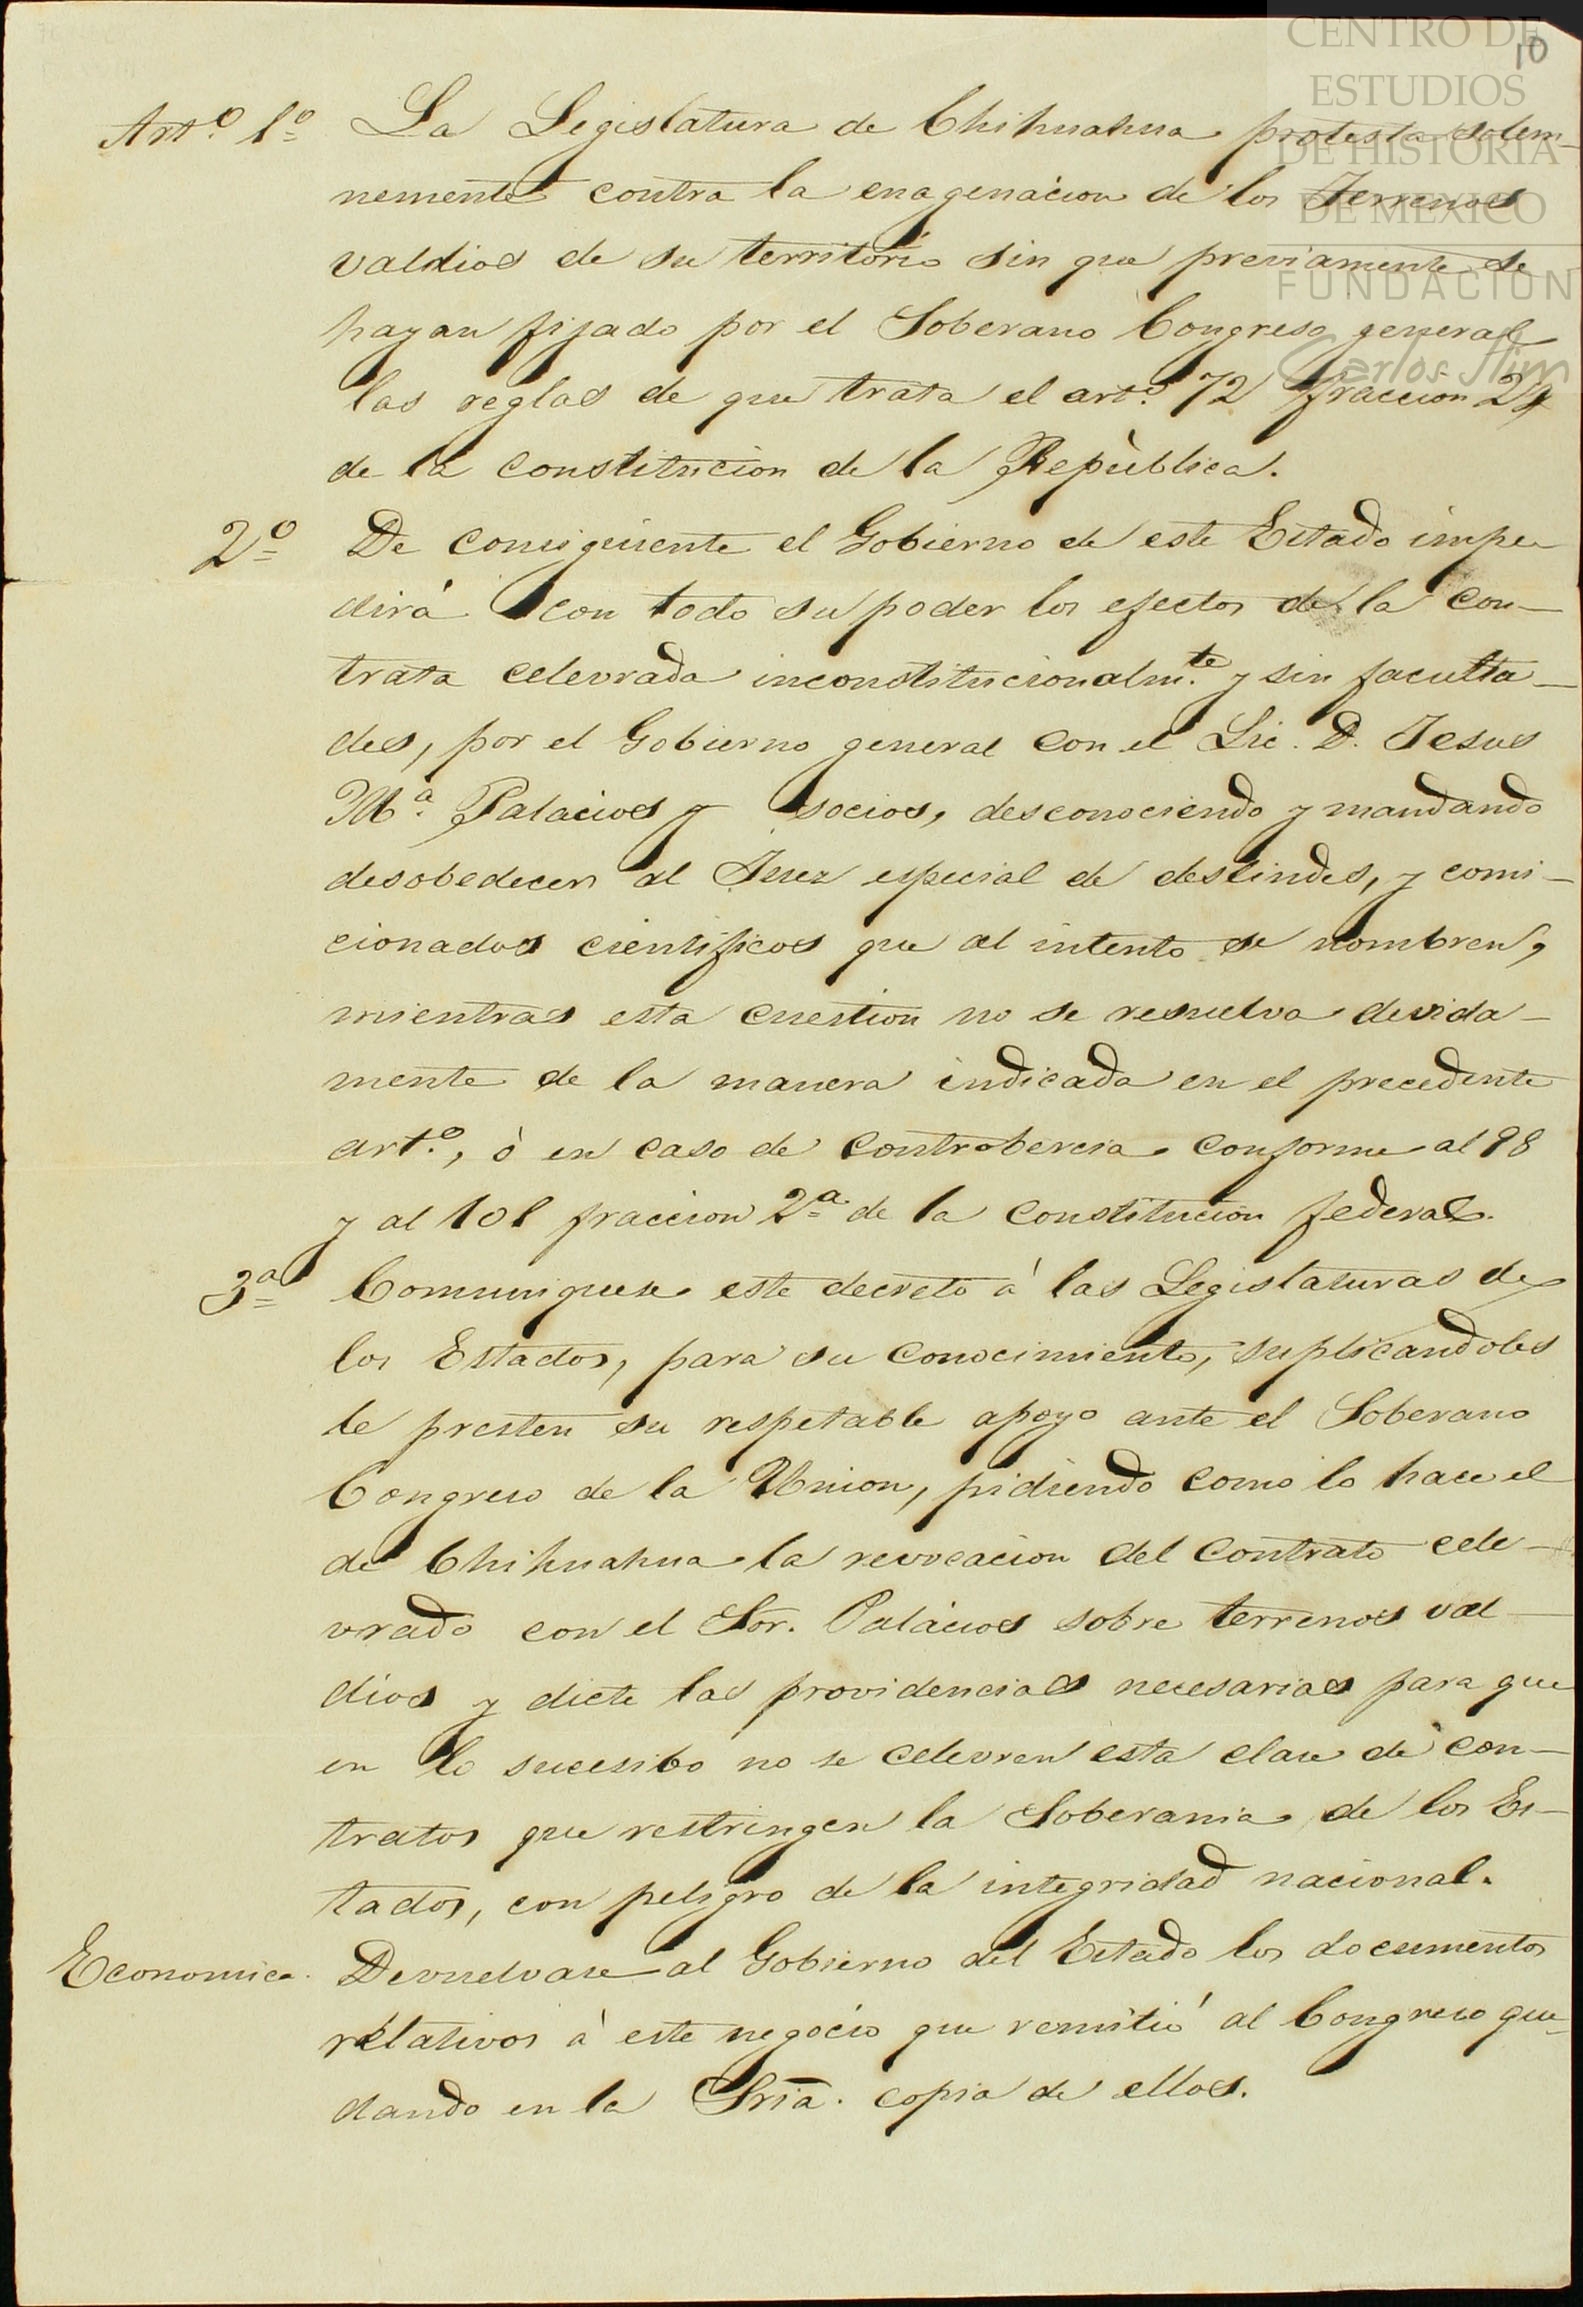 CENTRO DE
ESTUDIOS
DE HISTORIA
DE MEXICO
FUNDACION
Carlos Slim
10
Art.º 1º La Legislatura de Chihuahua protesta solem-
nemente contra la enagenacion de los Terrenos
valdios de su territorio sin que previamente se
hayan fijado por el Soberano Congreso general
las reglas de que trata el art.º 72 fraccion 24
de la constitucion de la Repùblica.
2º De consiguiente el Gobierno de este Estado impe-
dirá con todo su poder los efectos de la con-
trata celevrada inconstitucionalm.te y sin faculta-
des, por el Gobierno general con el Lic. D. Jesus
M.ª Palacios y socios, desconociendo y mandando
desobedecer al Juez especial de deslindes, y comi-
cionados cientificos que al intento se nombren,
mientras esta cuestion no se resuelva devida-
mente de la manera indicada en el precedente
art.º, ò en caso de controbercia conforme al 98
y al 101 fraccion 2ª de la constitucion federal.
3ª Comuniquese este decreto à las Legislaturas de
los Estados, para su conocimiento, suplicandoles
le presten su respetable apoyo ante el Soberano
Congreso de la Union, pidiendo como lo hace el
de Chihuahua la revocacion del contrato cele-
vrado con el Sor. Palacios sobre terrenos val-
dios y dicte las providencias necesarias para que
en lo sucesibo no se celevren esta clase de con-
tratos que restringen la Soberania de los Es-
tados, con peligro de la integridad nacional.
Economica. Devuelvase al Gobierno del Estado los documentos
relativos à este negocio que remitió al Congreso que-
dando en la Sría. copia de ellos.